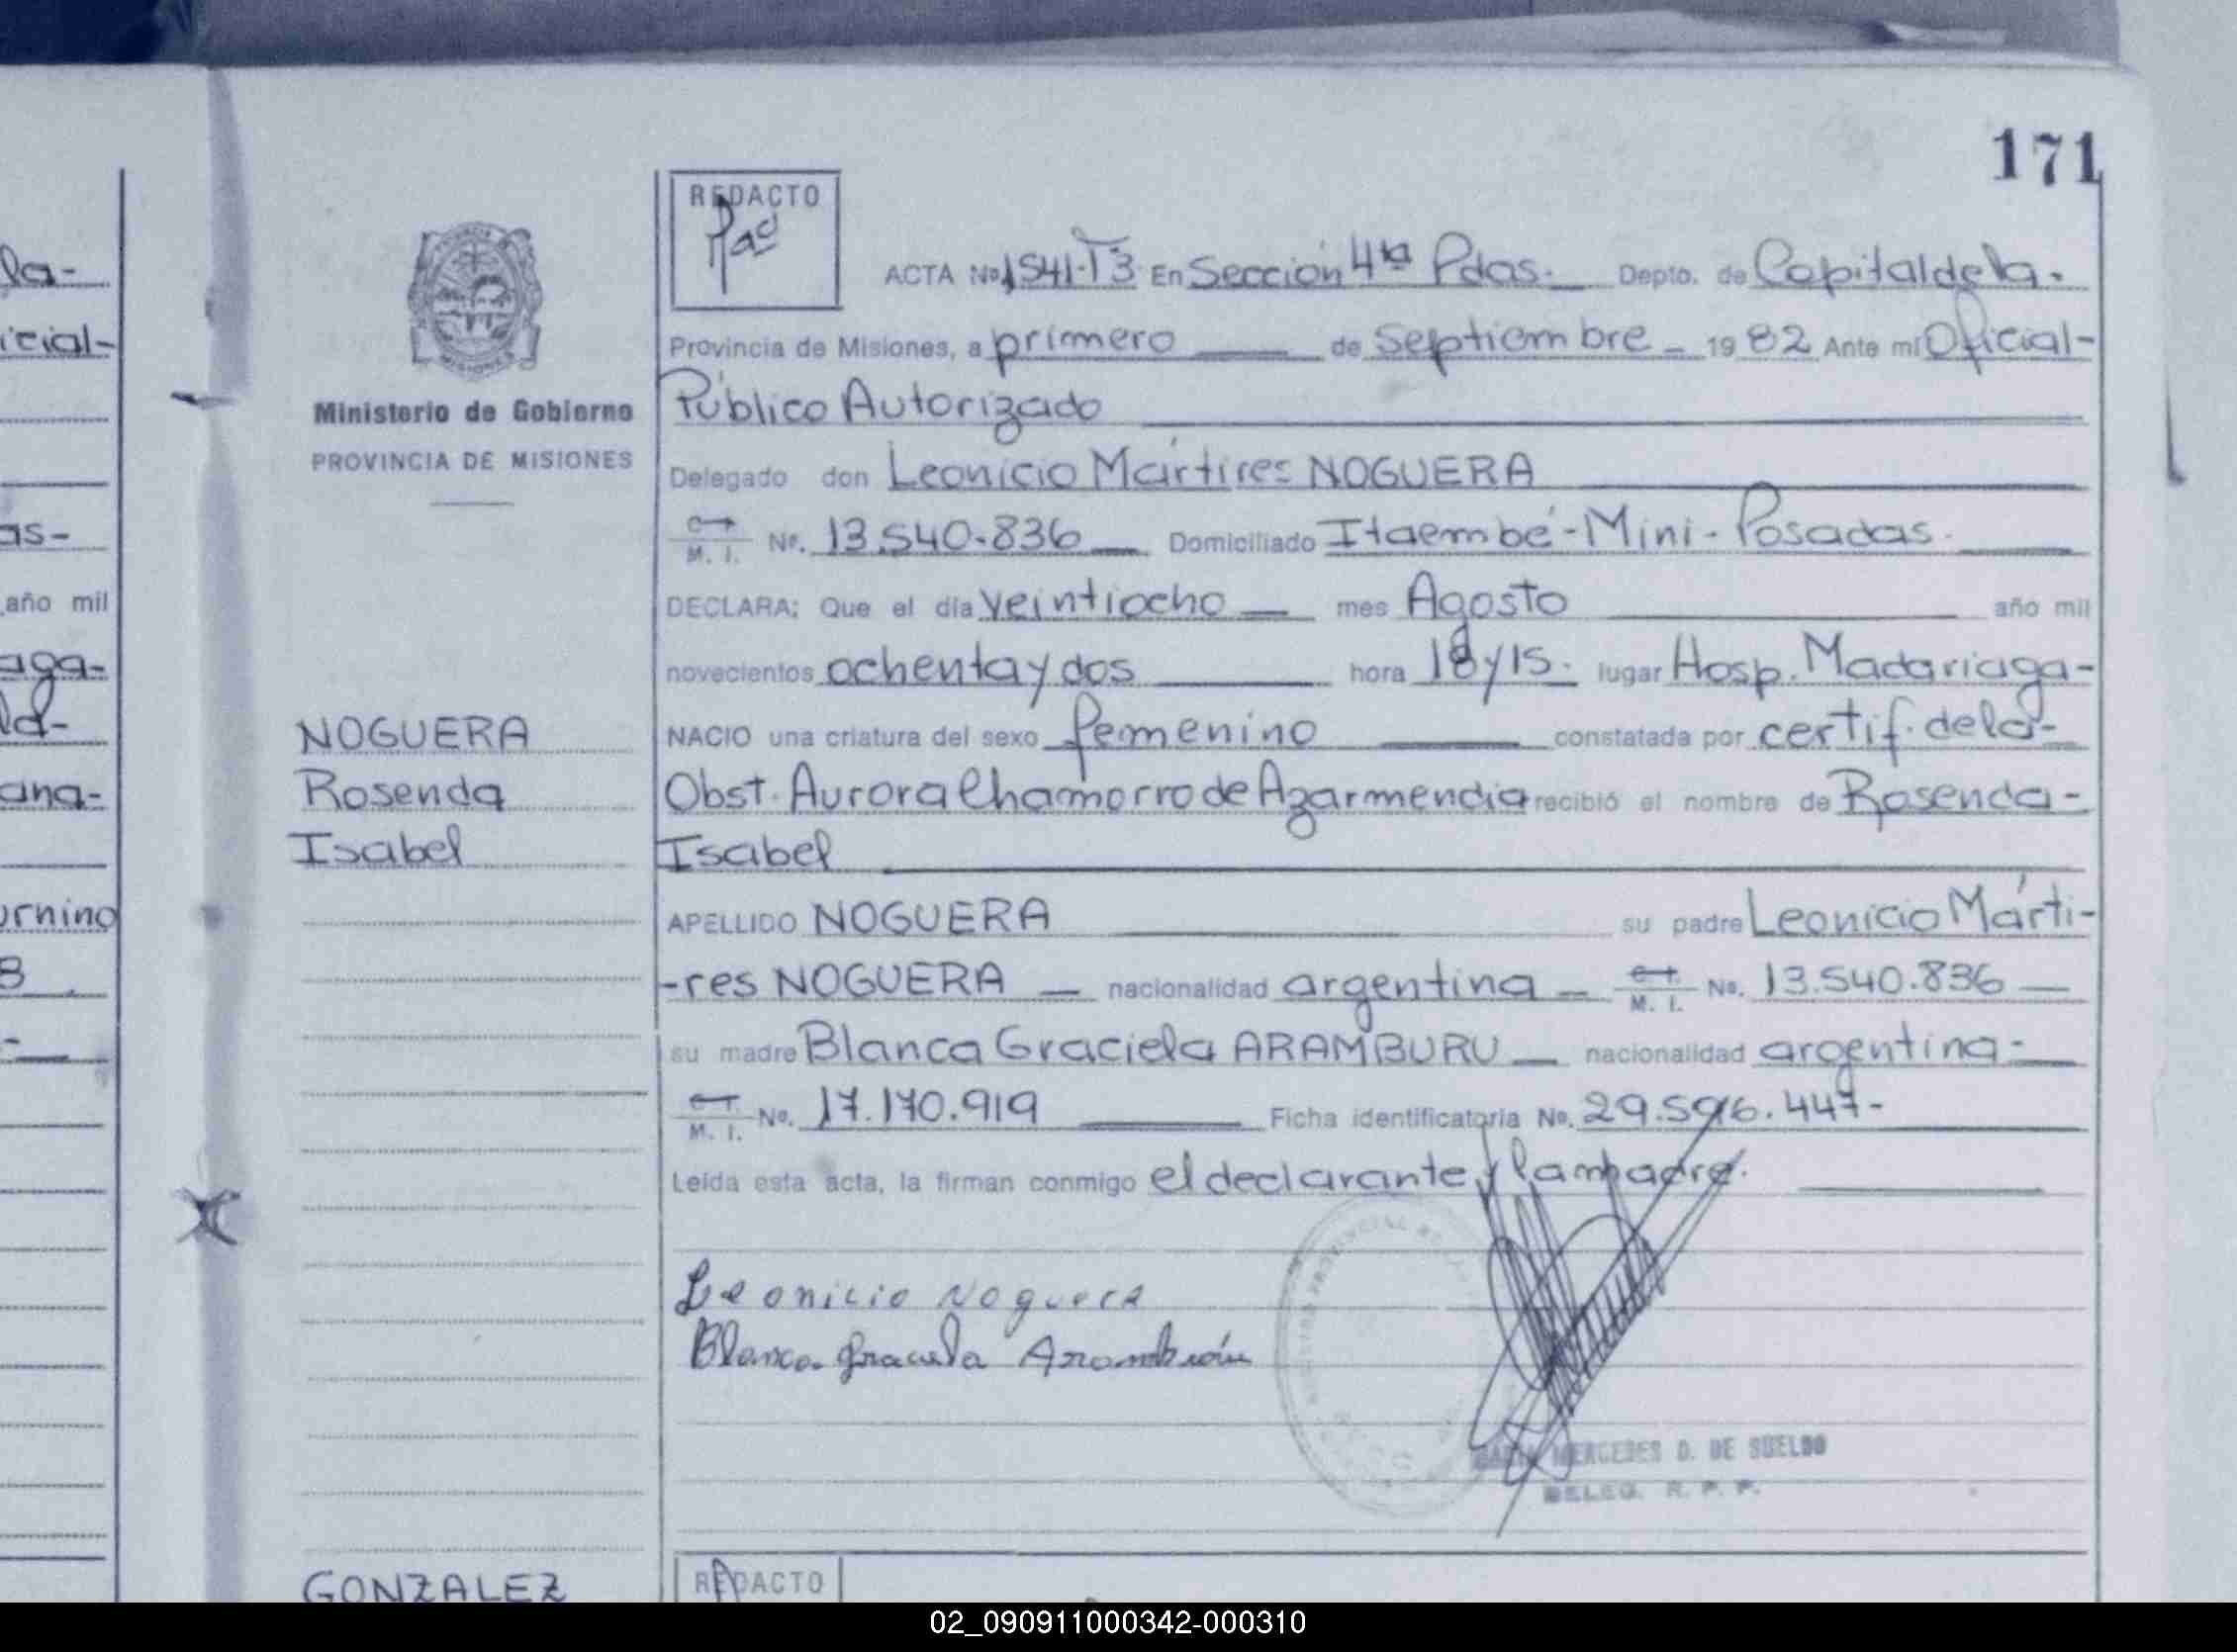 171
la-
icial-
as-
año mil
aga-
la-
ana-
urnino
REDACTO
ACTA No. 1541-T3 En Sección 4ta Pdas. Depto. de Capital de la.
Provincia de Misiones, a primero de Septiembre 1982 Ante mí Oficial-
Público Autorizado
Delegado don Leonicio Mártires NOGUERA
M. I. No. 13.540.836 Domiciliado Itaembé-Mini-Posadas.
DECLARA: Que el día veintiocho mes Agosto año mil
novecientos ochenta y dos hora 18 y 15. lugar Hosp. Madariaga-
NACIO una criatura del sexo femenino constatada por certif. de la-
Obst. Aurora Chamorro de Azarmendia recibió el nombre de Rosenda-
Isabel
APELLIDO NOGUERA su padre Leonicio Márti-
-res NOGUERA nacionalidad argentina C.I. M. I. No. 13.540.836
su madre Blanca Graciela ARAMBURU nacionalidad argentina-
C.I. M. I. No. 17.170.919 Ficha identificatoria No. 29.596.447-
Leída esta acta, la firman conmigo el declarante y la madre.
Leonicio Noguera
Blanca Graciela
MERCEDES D. DE SUELDO
DELEG. R. P. P.
Ministerio de Gobierno
PROVINCIA DE MISIONES
NOGUERA
Rosenda
Isabel
GONZALEZ
REDACTO
02_090911000342-000310